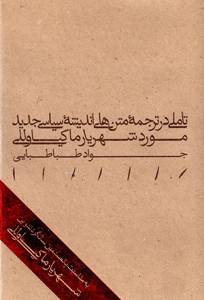 تاملی در ترجمهٔ متن‌های اندیشهٔ سیاسی جدید
مورد شهریار ماکیاوللی
جواد طباطبایی
شهریار ماکیاوللی